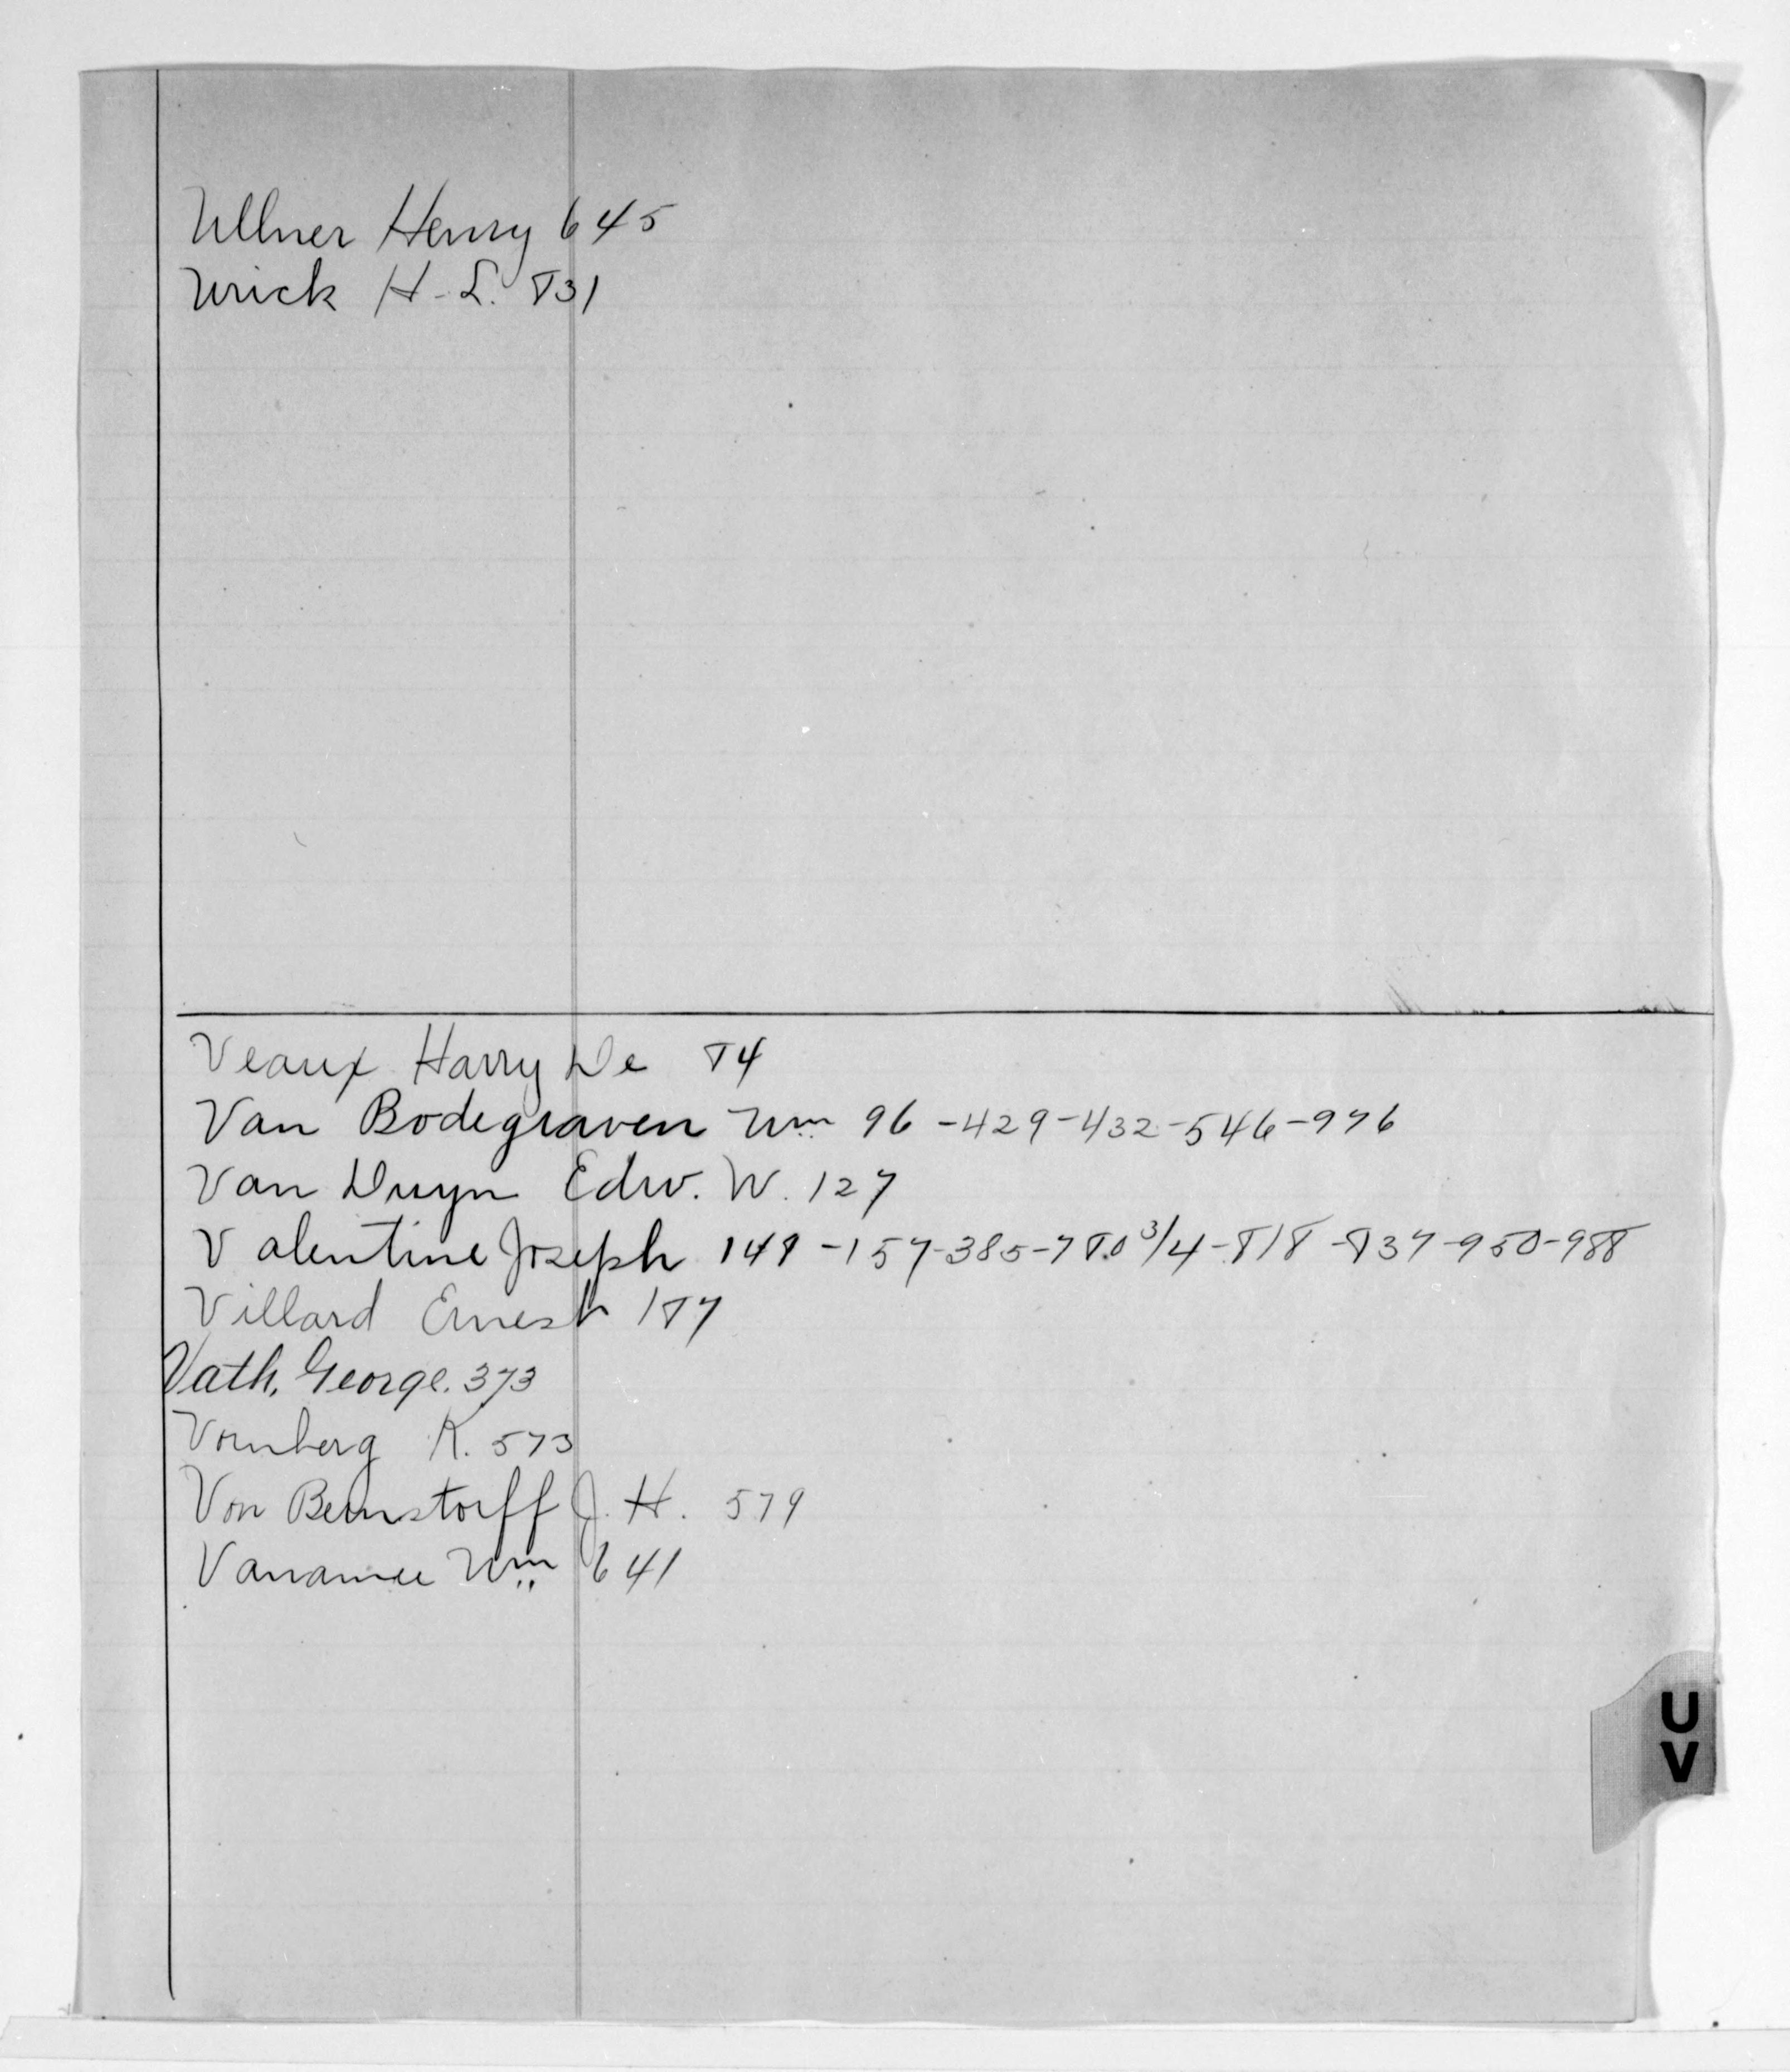 Ullner Henry 645
Urick H. L. 831
Veaux Harry De 84
Van Bodegraven Wm 96-429-432-546-976
Van Duyn Edw. W. 127
Valentine Joseph 149-157-385-780 3/4-818-837-950-988
Villard Ernest 187
Vath, George. 373
Vornberg K. 573
Von Bernstorff J. H. 579
Vanamee Wm 641
U
V